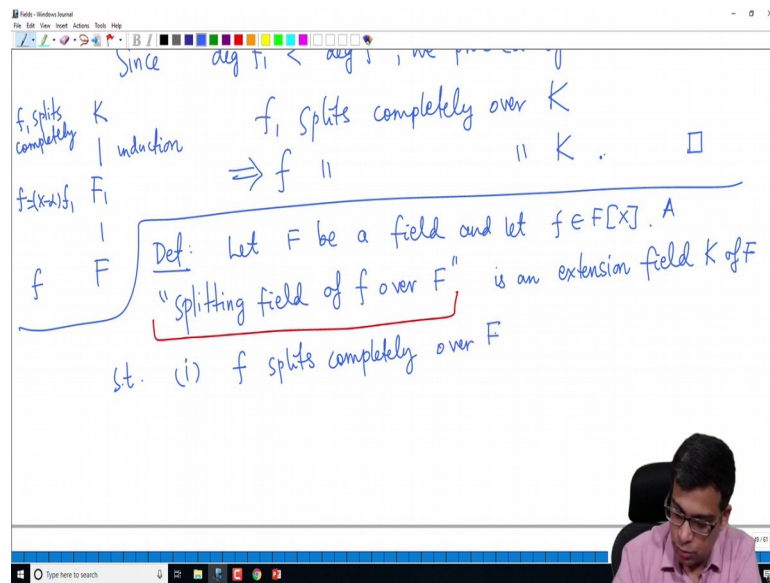 Fields - Windows Journal
File Edit View Insert Actions Tools Help
Since deg f₁ < deg f, we
f₁ splits completely over K
⇒ f " " K . □
f₁ splits completely K
| induction
f=(x-α)f₁ F₁
|
f F
Def: Let F be a field and let f ∈ F[X]. A
"splitting field of f over F" is an extension field K of F
s.t. (i) f splits completely over F
/ 61
Type here to search